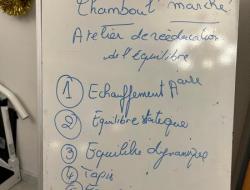 Chambout marché
Atelier de rééducation
de l'équilibre
1 Echauffement
2 Equilibre statique
3 Equilibre dynamique
4 Tapis
5